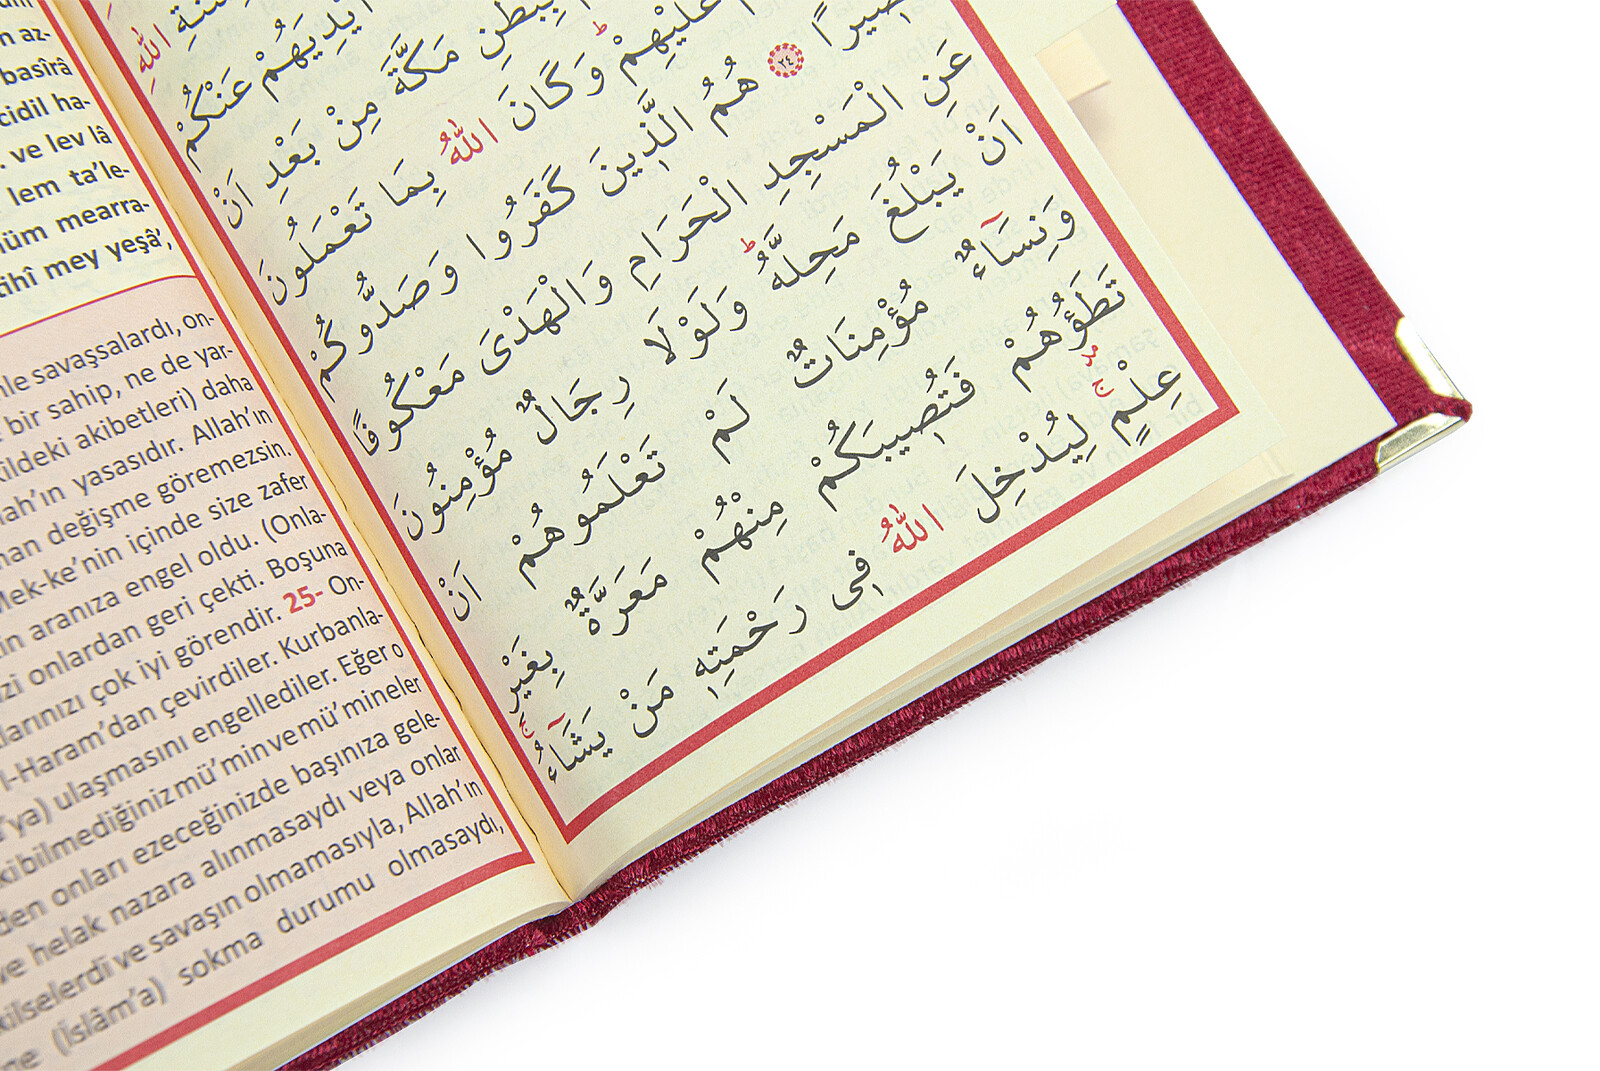 n az-
basîrâ
cidil ha-
. ve lev lâ
lem ta'le-
hüm mearra-
tihî mey yeşâ',
nle savaşsalardı, on-
bir sahip, ne de yar-
kildeki akibetleri) daha
bir yasasıdır. Allah'ın
man değişme göremezsin.
Mek-ke'nin içinde size zafer
in aranıza engel oldu. (Onla-
zi onlardan geri çekti. Boşuna
larınızı çok iyi görendir. 25- On-
l-Haram'dan çevirdiler. Kurbanla-
'ya) ulaşmasını engellediler. Eğer o
kibilmediğiniz mü'min ve mü'mineler
den onları ezeceğinizde başınıza gele-
ve helak nazara alınmasaydı veya onlar
kilselerdi ve savaşın olmamasıyla, Allah'ın
ne (İslâm'a) sokma durumu olmasaydı,
اللّٰهِ
اَيْدِيَهُمْ عَنْكُمْ
بِبَطْنِ مَكَّةَ مِنْ بَعْدِ اَنْ
عَلَيْهِمْۜ وَكَانَ اللّٰهُ بِمَا تَعْمَلُونَ
بَصِيرًا ﴿٢٤﴾ هُمُ الَّذِينَ كَفَرُوا وَصَدُّوكُمْ
عَنِ الْمَسْجِدِ الْحَرَامِ وَالْهَدْىَ مَعْكُوفًا
اَنْ يَبْلُغَ مَحِلَّهُۜ وَلَوْلَا رِجَالٌ مُؤْمِنُونَ
وَنِسَٓاءٌ مُؤْمِنَاتٌ لَمْ تَعْلَمُوهُمْ اَنْ
تَطَؤُ۫هُمْ فَتُصِيبَكُمْ مِنْهُمْ مَعَرَّةٌ بِغَيْرِ
عِلْمٍۚ لِيُدْخِلَ اللّٰهُ فِى رَحْمَتِهِ مَنْ يَشَٓاءُۚ